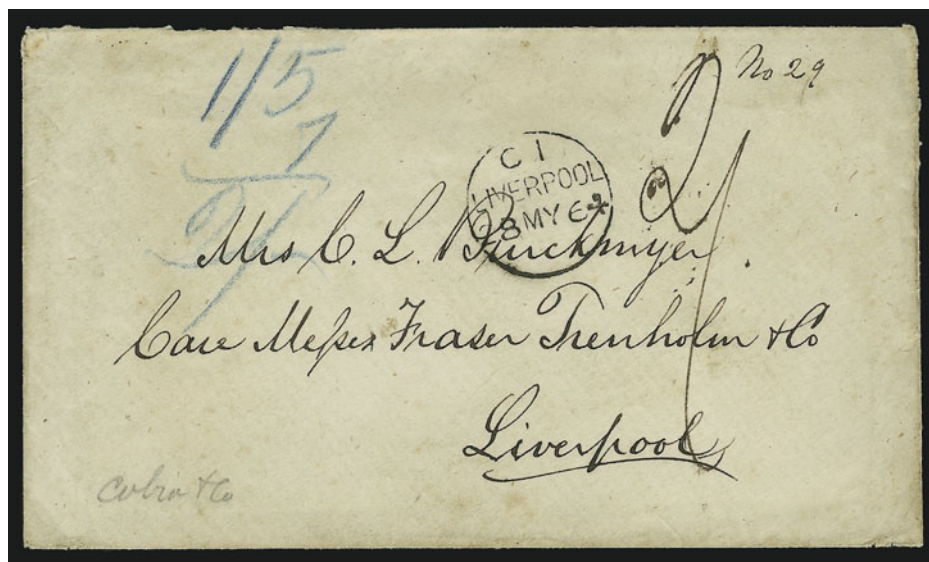 1/5
7
2/
No 29
2/
C 1
LIVERPOOL
8 MY 64
Mrs C. L. Burckmyer.
Care Messrs Fraser Trenholm & Co
Liverpool
& Co